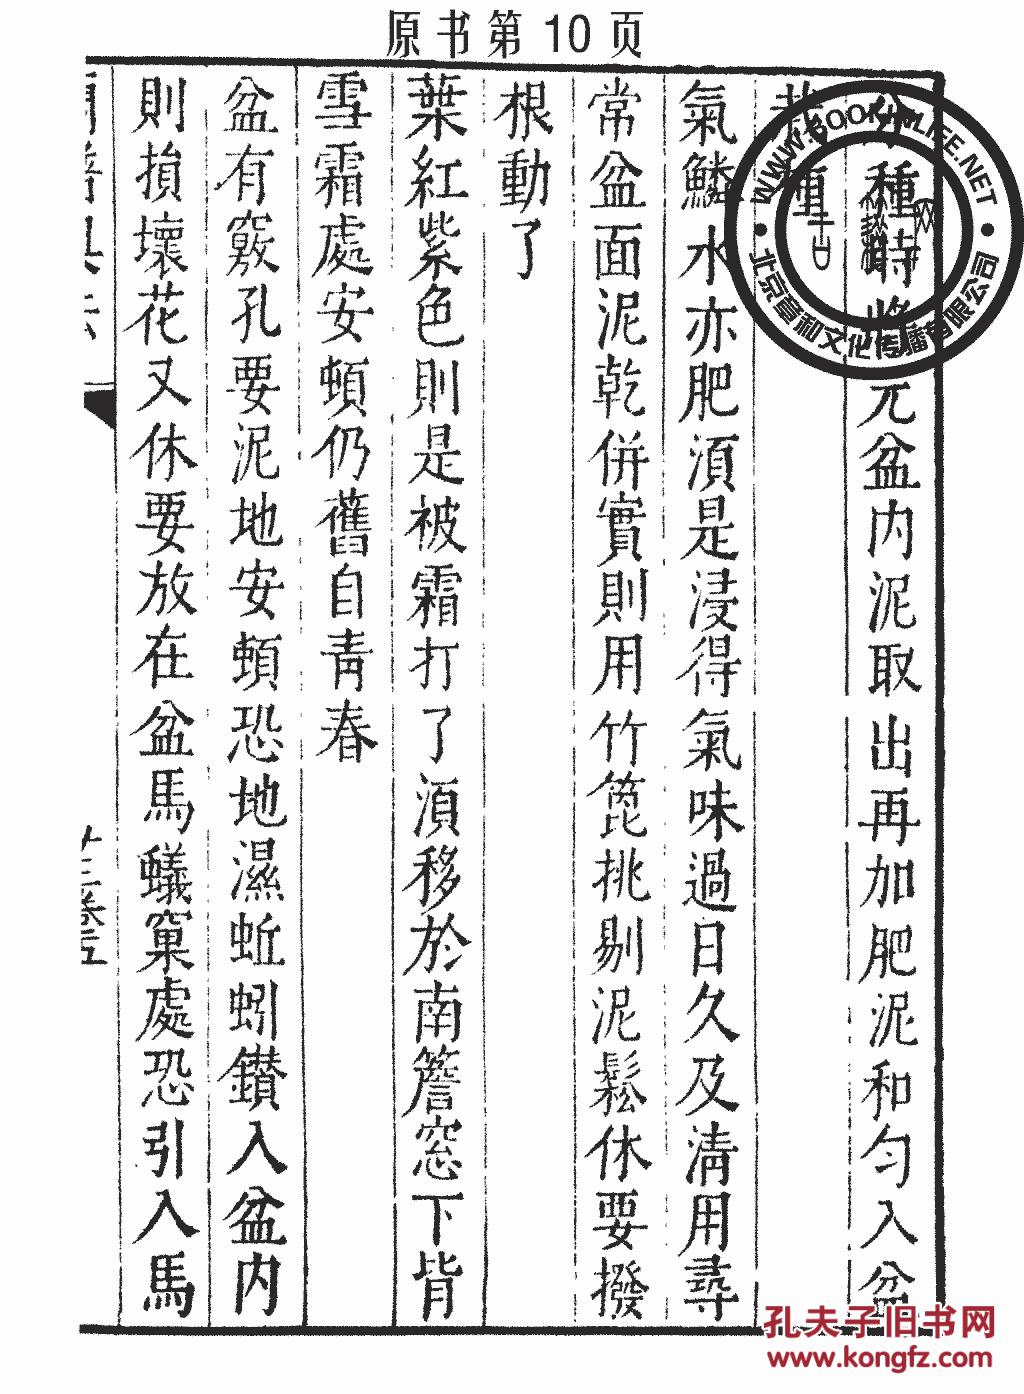 原书第10页
分種時將元盆内泥取出再加肥泥和勻入盆
種
氣鱗水亦肥湏是浸得氣味過日久及淸用尋
常盆面泥乾併實則用竹篦挑剔泥鬆休要撥
根動了
葉紅紫色則是被霜打了湏移於南簷窓下背
雪霜處安頓仍舊自靑春
盆有竅孔要泥地安頓恐地濕蚯蚓鑚入盆内
則損壞花又休要放在盆馬蟻窠處恐引入馬
卷五
WWW.BOOKINLIFE.NET
北京章和文化传播有限公司
孔夫子旧书网
www.kongfz.com